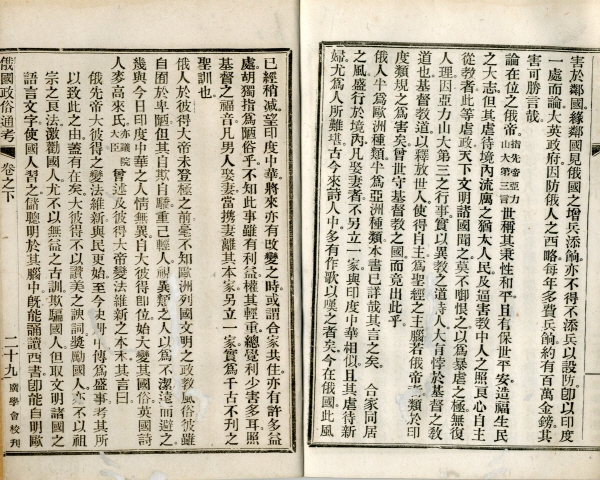 害於鄰國緣鄰國見俄國之增兵添餉亦不得不添兵以設防卽以印度
一處而論大英政府因防俄人之西略每年多費兵餉約有百萬金鎊其
害可勝言哉
論在位之俄帝指先帝亞力山大第三言世稱其秉性和平且有保世平安造福生民
之大志但其虐待境內流寓之猶太人民及逼害教中人之照良心自主
從教者此等虐政天下文明諸國聞之莫不嗤恨之以爲暴虐之極無復
人理因亞力山大第三之行事實以異教之道待人大背悖於基督之教
道也基督教道以釋放世人使得自主爲聖經之主腦若俄帝三類於印
度類規之爲害矣曾世守基督教之國而竟出此乎
俄人半爲歐洲種類半爲亞洲種類本書已詳哉其言之矣 合家同居
之風盛行於境內凡娶妻者不另立一家與印度中華相似且其虐待新
婦尤爲人所難堪古今來詩人中多有作歌以嘆之者矣今在俄國此風
已經稍減望印度中華將來亦有改變之時或謂合家共住亦有許多益
處胡獨指爲陋俗乎不知此事雖有利益權其輕重總覺利少害多耳照
基督之福音凡男人娶妻當攜妻離其本家另立一家實爲千古不刊之
聖訓也
俄人於彼得大帝未登極之前毫不知歐洲列國文明之政教風俗彼雖
自囿於卑陋但其自欺自驕重己輕人視異類之人以爲不潔遠而避之
幾與今日印度中華之人情無異自大彼得卽位始大變其國俗英國詩
人麥高來氏亦議院大臣曾述及彼得大帝變法維新之本末其言曰
俄先帝大彼得之變法維新與民更始至今史冊中傳爲盛事考其所
以致此之由蓋有在矣大彼得不以讚美之諛詞獎勵國人亦不以祖
宗之良法激勸國人尤不以無益之古訓欺騙國人但取文明諸國之
語言文字使國人習之儲聰明於其腦中旣能誦讀西書卽能自明歐
俄國政俗通考 卷之下 二十九 廣學會校刊